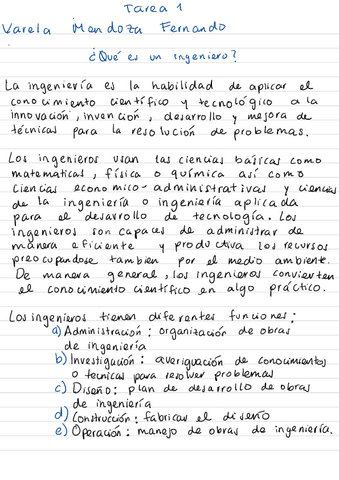 Tarea 1
Varela Mendoza Fernando
¿Qué es un ingeniero?
La ingeniería es la habilidad de aplicar el
conocimiento científico y tecnológico a la
innovación, invención, desarrollo y mejora de
técnicas para la resolución de problemas.
Los ingenieros usan las ciencias basicas como
matematicas, física o química así como
ciencias economico-administrativas y ciencias
de la ingeniería o ingeniería aplicada
para el desarrollo de tecnología. Los
ingenieros son capaces de administrar de
manera eficiente y productiva los recursos
preocupandose tambien por el medio ambiente.
De manera general, los ingenieros convierten
el conocimiento científico en algo práctico.
Los ingenieros tienen diferentes funciones:
a) Administración: organización de obras
de ingeniería
b) Investigación: averiguación de conocimientos
o tecnicas para resolver problemas
c) Diseño: plan de desarrollo de obras
de ingeniería
d) Construcción: fabricar el diseño
e) Operación: manejo de obras de ingeniería.